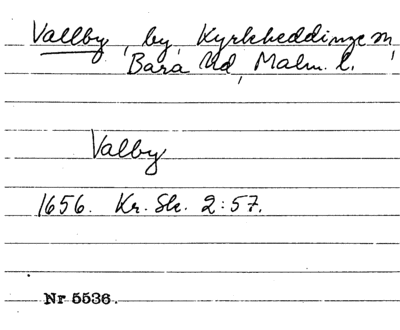 Vallby, by, Kyrkheddinge sn,
Bara hd, Malm. l.
Valby
1656. Kr. Sk. 2:57.
Nr 5536.